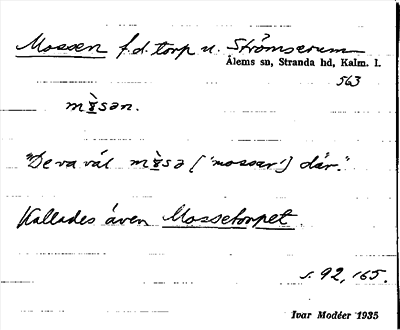 Mossen f.d. torp u. Strömserum
Ålems sn, Stranda hd, Kalm. l.
563
"De va väl [ 'mossar' ] där."
Kallades även Mossetorpet.
s. 92, 165.
Ivar Modéer 1935